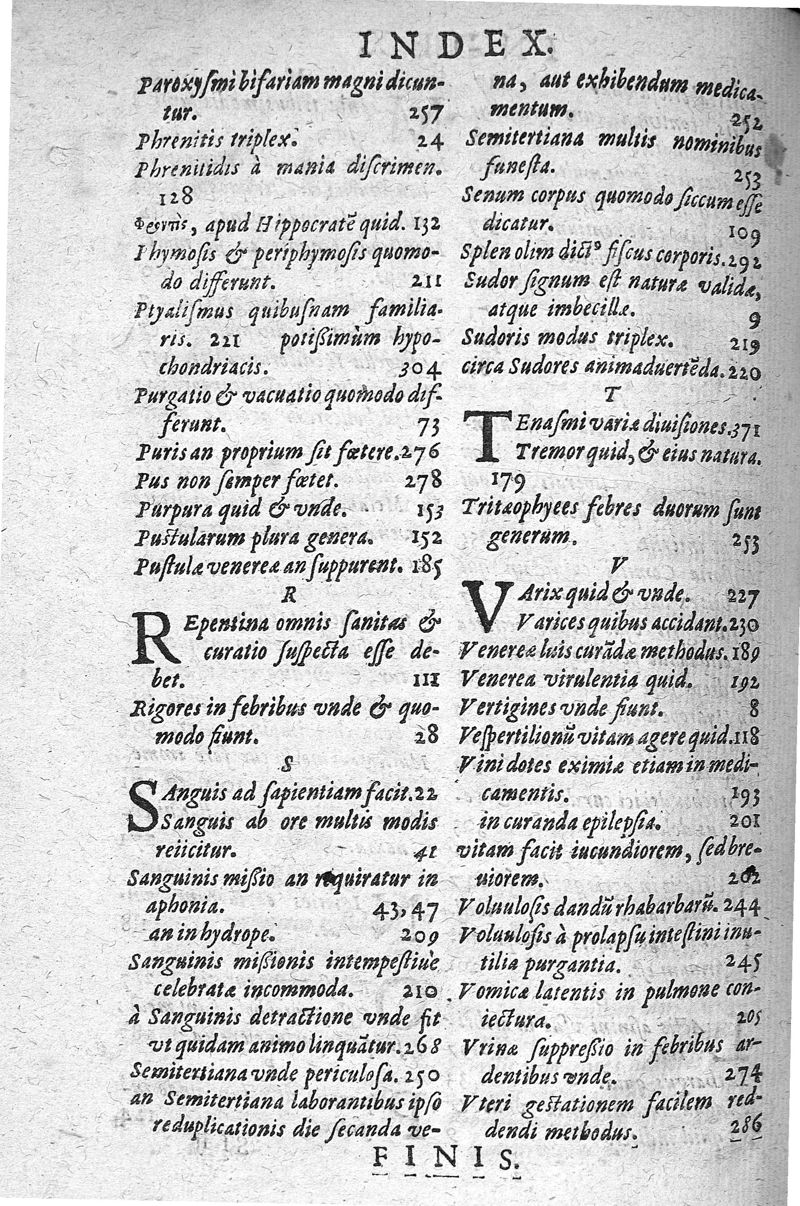 INDEX.
Paroxyſmi bifariam magni dicun-
tur. 257
Phrenitis triplex. 24
Phrenitidis à mania diſcrimen.
128
apud Hippocratẽ quid. 132
Phymoſis & periphymoſis quomo-
do differunt. 211
Ptyaliſmus quibuſnam familia-
ris. 221 potißimùm hypo-
chondriacis. 304
Purgatio & vacuatio quomodo dif-
ferunt. 73
Puris an proprium ſit fœtere. 276
Pus non ſemper fœtet. 278
Purpura quid & vnde. 153
Puſtularum plura genera. 152
Puſtulæ venereæ an ſuppurent. 185
R
REpentina omnis ſanitas &
curatio ſuſpecta eſſe de-
bet. 111
Rigores in febribus vnde & quo-
modo fiunt. 28
S
SAnguis ad ſapientiam facit. 22
Sanguis ab ore multis modis
reiicitur. 41
Sanguinis mißio an requiratur in
aphonia. 43, 47
an in hydrope. 209
Sanguinis mißionis intempeſtiuè
celebratæ incommoda. 210
à Sanguinis detractione vnde fit
vt quidam animo linquãtur. 268
Semitertiana vnde periculoſa. 250
an Semitertiana laborantibus ipſo
reduplicationis die ſecanda ve-
na, aut exhibendum medica-
mentum. 252
Semitertiana multis nominibus
funeſta. 253
Senum corpus quomodo ſiccum eſſe
dicatur. 109
Splen olim dictꝰ fiſcus corporis. 292
Sudor ſignum eſt naturæ validæ,
atque imbecillæ. 9
Sudoris modus triplex. 219
circa Sudores animaduertẽda. 220
T
TEnaſmi variæ diuiſiones. 371
Tremor quid, & eius natura.
179
Tritæophyees febres duorum ſunt
generum. 253
V
VArix quid & vnde. 227
Varices quibus accidant. 230
Venereæ luis curãdæ methodus. 189
Venerea virulentia quid. 192
Vertigines vnde fiunt. 8
Veſpertilionũ vitam agere quid. 118
Vini dotes eximiæ etiam in medi-
camentis. 193
in curanda epilepſia. 201
vitam facit iucundiorem, ſed bre-
uiorem. 202
Voluuloſis dandũ rhabarbarũ. 244
Voluuloſis à prolapſu inteſtini inu-
tilia purgantia. 245
Vomicæ latentis in pulmone con-
iectura. 205
Vrinæ ſuppreßio in febribus ar-
dentibus vnde. 274
Vteri geſtationem facilem red-
dendi methodus. 286
FINIS.